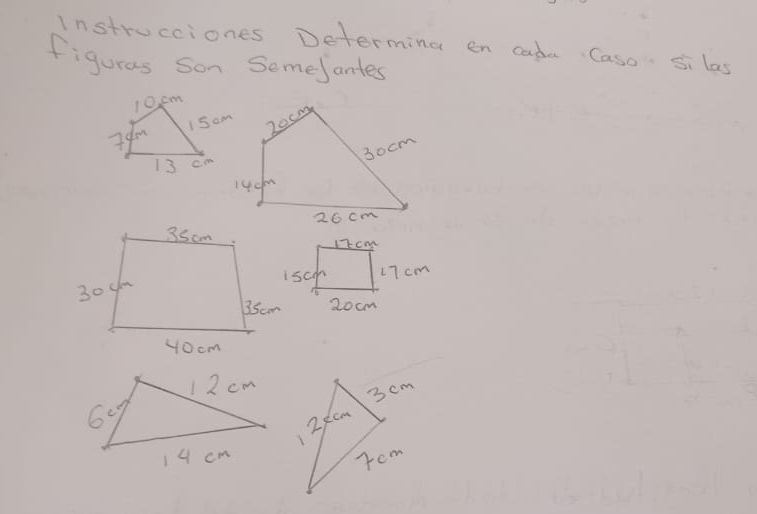 Instrucciones Determina en cada caso si las
figuras son semejantes
10cm
7cm
15cm
13 cm
20cm
30cm
14cm
26 cm
35cm
30cm
35cm
40cm
17cm
15cm
17cm
20cm
6cm
12cm
14 cm
3cm
12cm
7cm